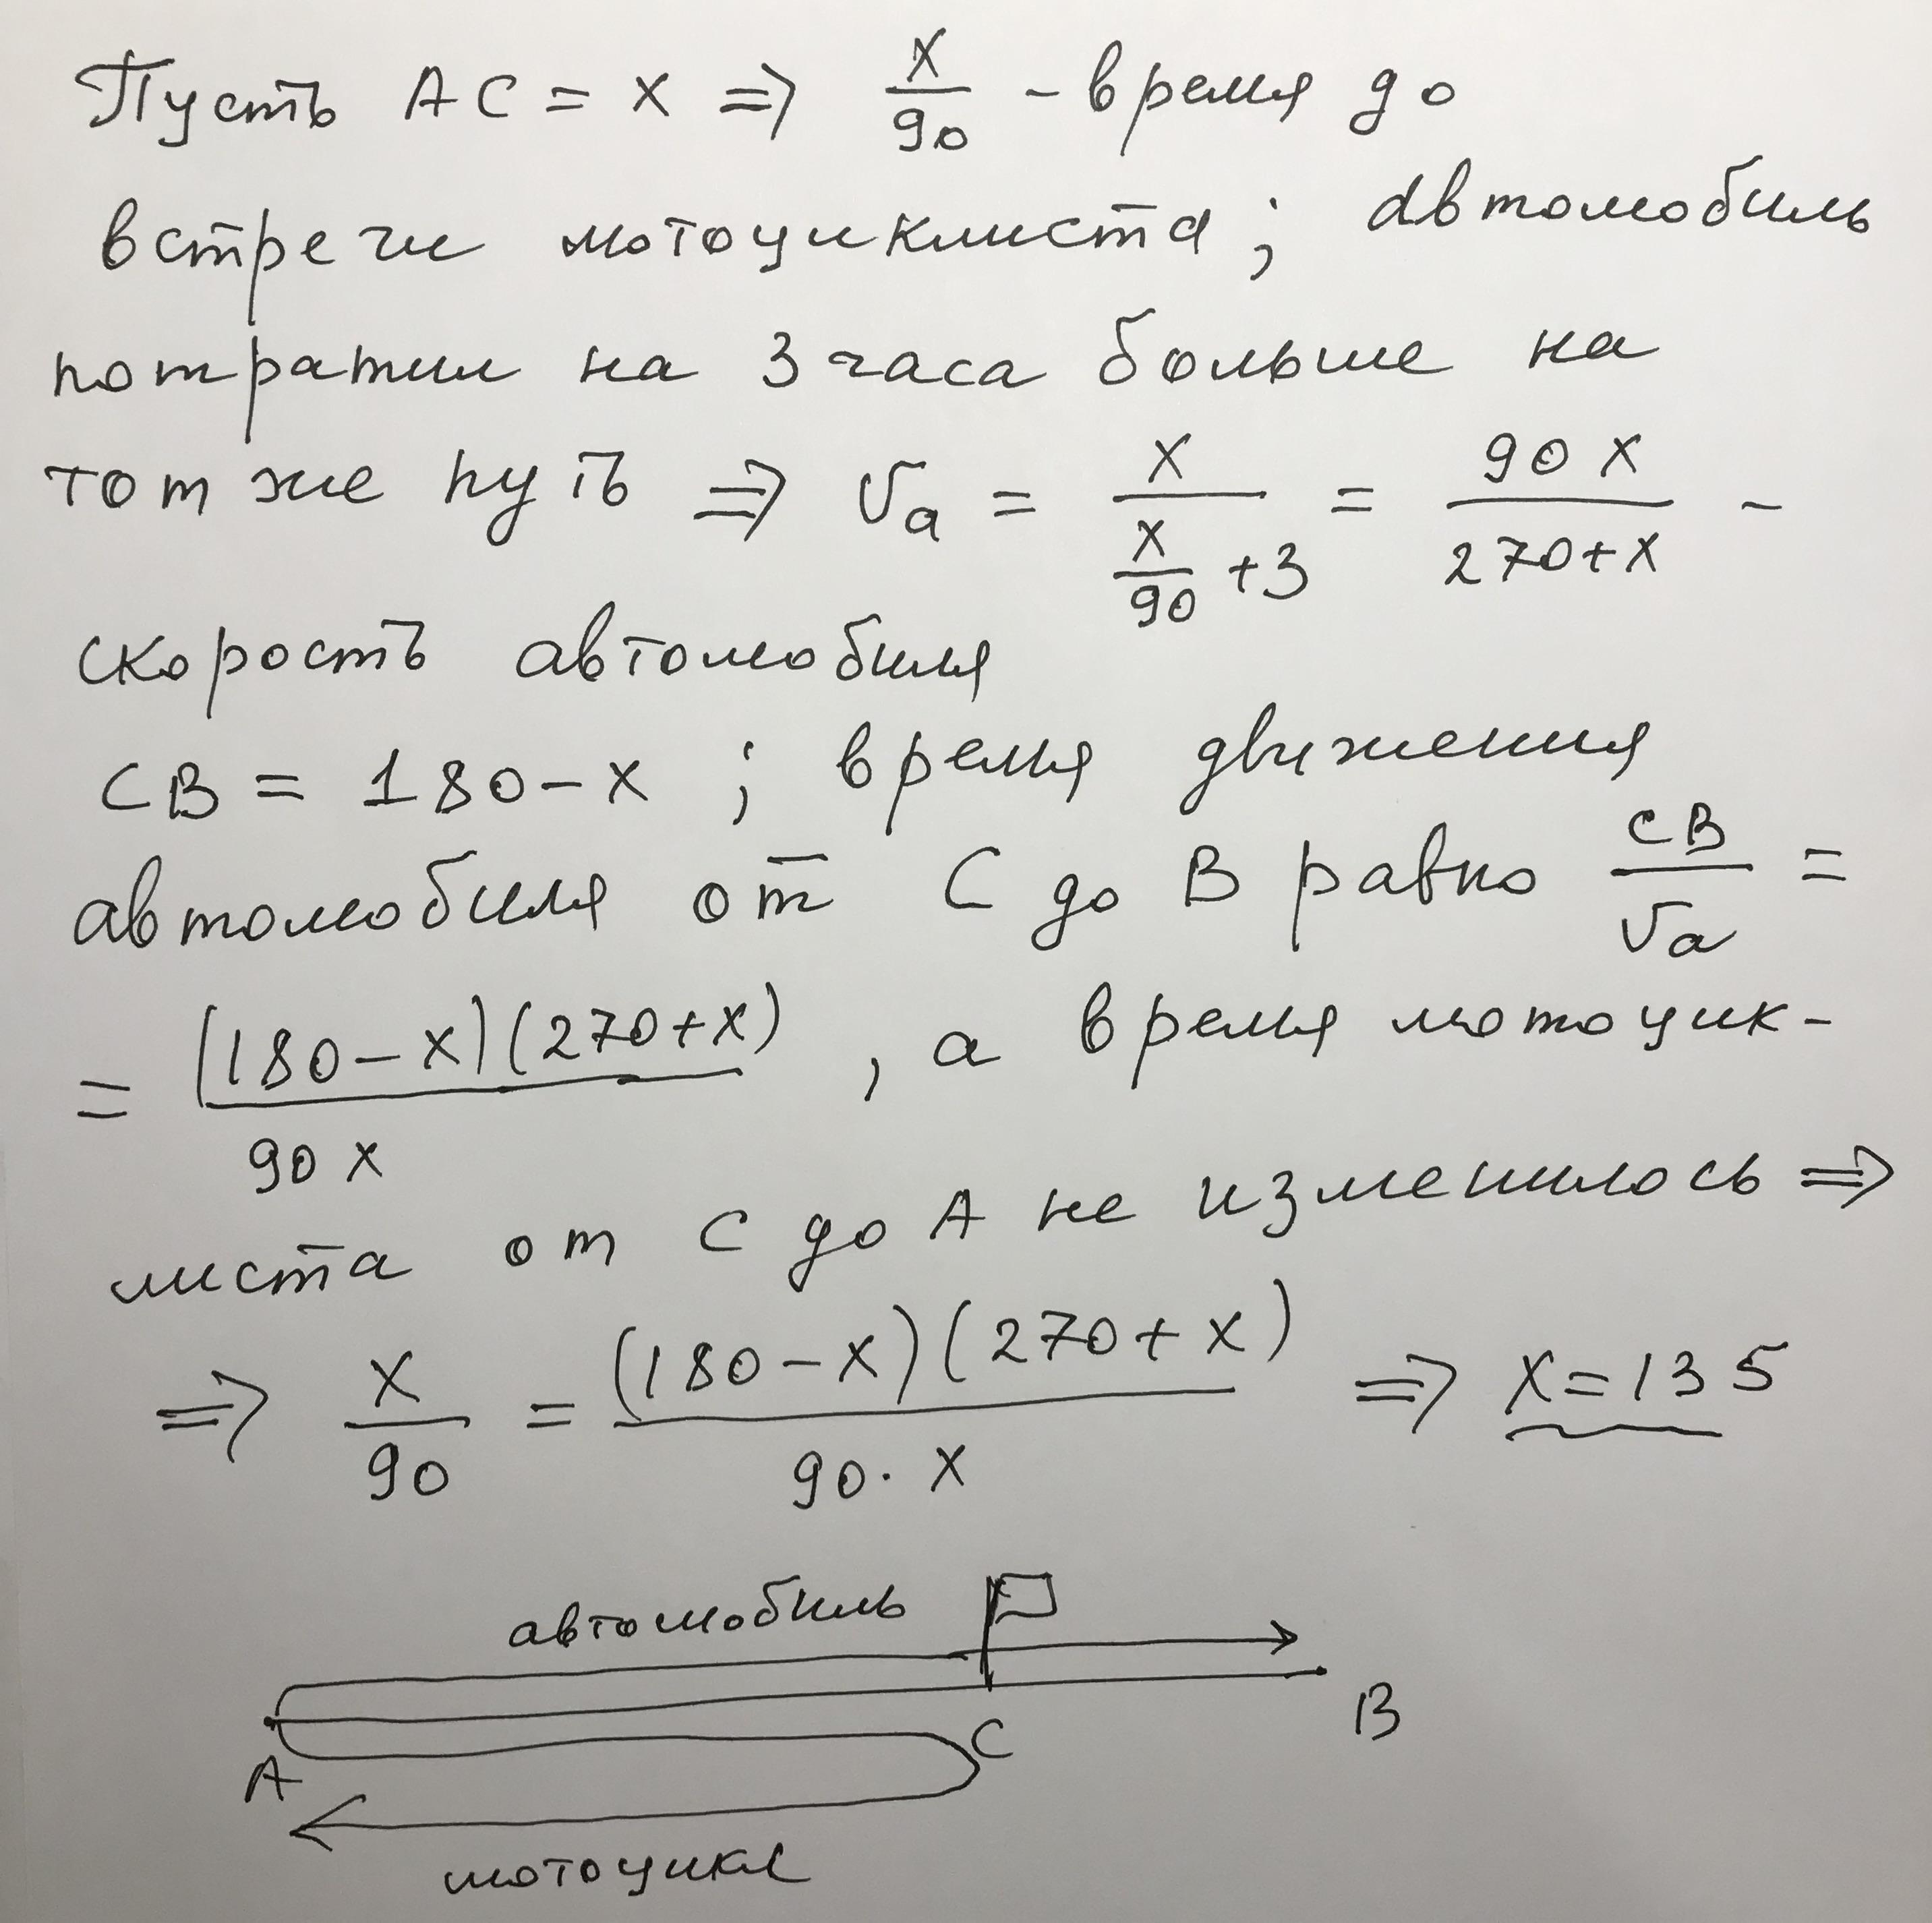 Пусть AC = x ⇒ x/90 - время до
встречи мотоциклиста; автомобиль
потратил на 3 часа больше на
тот же путь ⇒ Va = x/(x/90 + 3) = 90x/(270+x) -
скорость автомобиля
CB = 180-x ; время движения
автомобиля от C до B равно CB/Va =
= (180-x)(270+x)/90x , а время мотоцик-
листа от C до A не изменилось ⇒
⇒ x/90 = (180-x)(270+x)/90·x ⇒ x=135
автомобиль
A
C
B
мотоцикл